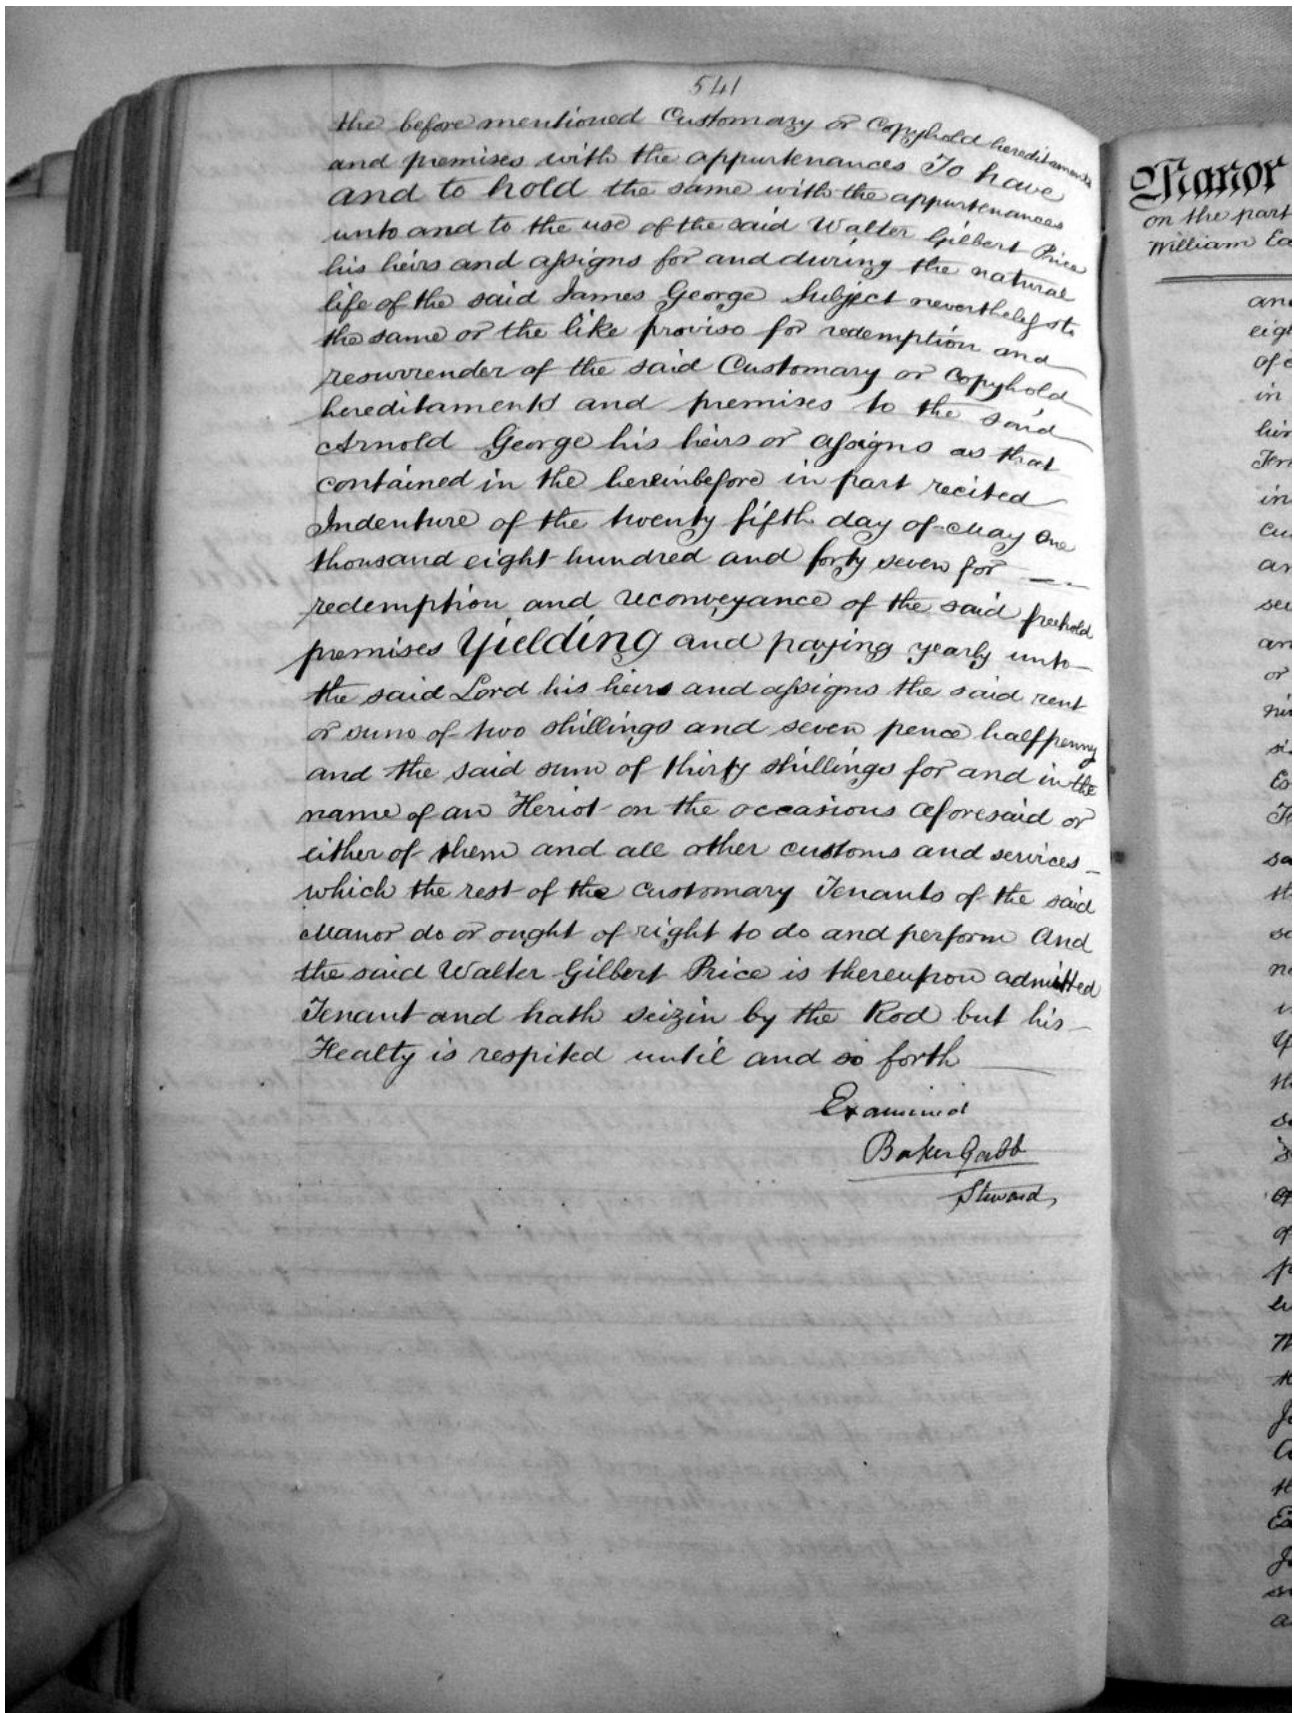 541
the before mentioned Customary or Copyhold hereditaments
and premises with the appurtenances To have
and to hold the same with the appurtenances
unto and to the use of the said Walter Gilbert Price
his heirs and assigns for and during the natural
life of the said James George Subject nevertheless to
the same or the like proviso for redemption and
resurrender of the said Customary or Copyhold
hereditaments and premises to the said
Arnold George his heirs or assigns as that
contained in the hereinbefore in part recited
Indenture of the twenty fifth day of May One
thousand eight hundred and forty seven for
redemption and reconveyance of the said freehold
premises Yielding and paying yearly unto
the said Lord his heirs and assigns the said rent
or sum of two shillings and seven pence halfpenny
and the said sum of thirty shillings for and in the
name of an Heriot on the occasions aforesaid or
either of them and all other customs and services
which the rest of the customary Tenants of the said
Manor do or ought of right to do and perform And
the said Walter Gilbert Price is thereupon admitted
Tenant and hath seizin by the Rod but his
Fealty is respited until and so forth
Examined
Baker Gabb
Steward
Manor
on the part
William Ea
and
eig
of
in
in
or